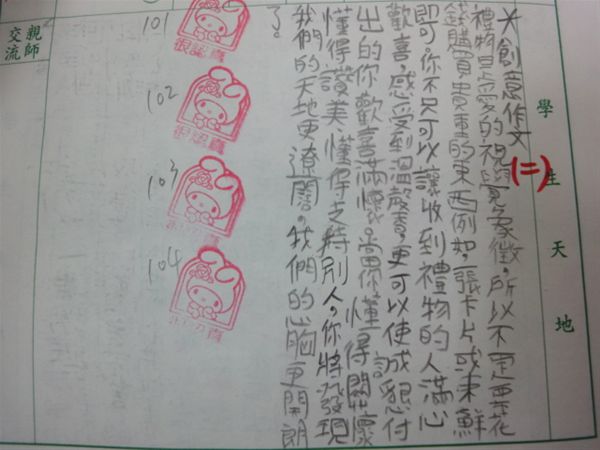 學生天地
※創意作文(二)
禮物是愛的視覺象徵,所以不一定要花
錢購買貴重的東西,例如一張卡片或束鮮
即可。你不只可以讓收到禮物的人滿心
歡喜,感受到溫馨,更可以使誠懇付
出的你歡喜滿懷。當你懂得開懷
懂得讚美、懂得支持別人,你將發現
我們的天地更遼闊。我們的心胸更開朗
了。
101
很認真
102
很認真
103
104
親師交流